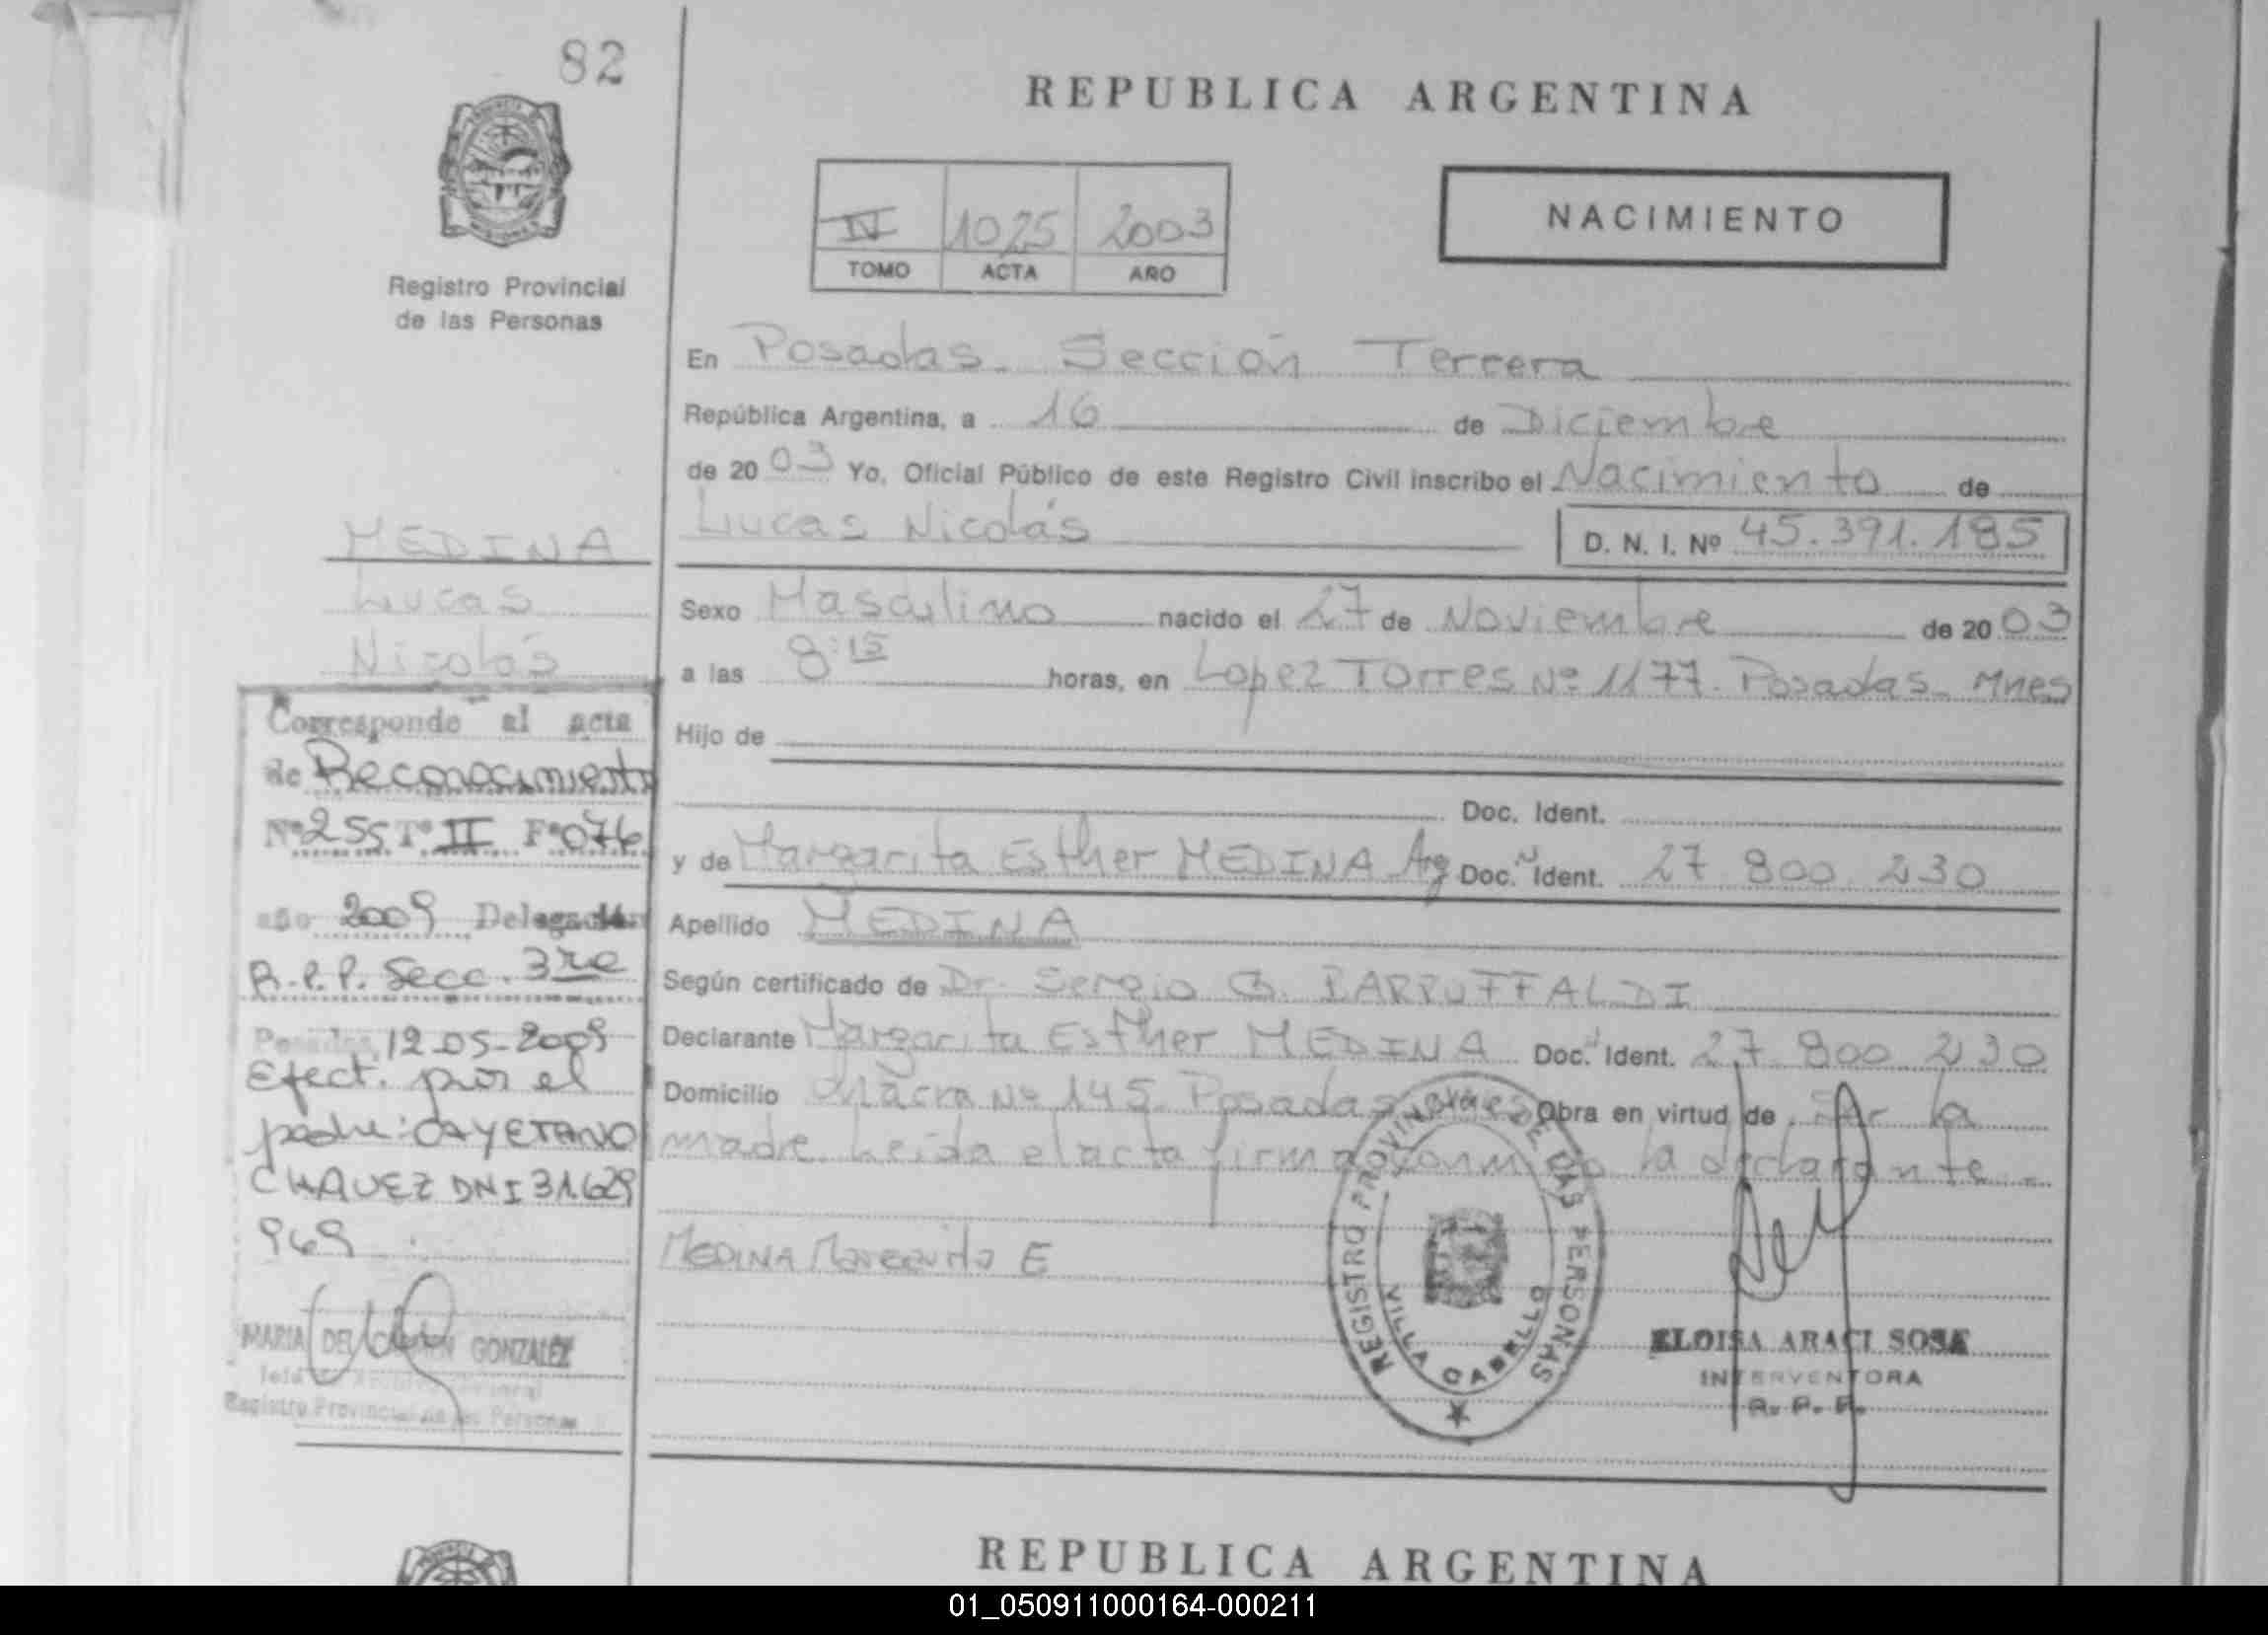 82
REPUBLICA ARGENTINA
IV 1025 2003
TOMO ACTA AÑO
NACIMIENTO
Registro Provincial
de las Personas
En Posadas. Sección Tercera
República Argentina, a 16 de Diciembre
de 2003 Yo, Oficial Público de este Registro Civil inscribo el Nacimiento de
Lucas Nicolás D. N. I. Nº 45.391.185
MEDINA
Lucas
Nicolás
Sexo Masculino nacido el 27 de Noviembre de 2003
a las 8:15 horas, en Lopez Torres Nº 1177. Posadas. Mnes
Hijo de
Doc. Ident.
y de Margarita Esther MEDINA Arg Doc. Ident. 27 800 230
Apellido MEDINA
Según certificado de Dr. Sergio G. BARRUFFALDI
Declarante Margarita Esther MEDINA Doc. Ident. 27.800.230
Domicilio Nº 145. Posadas. Obra en virtud de Ser la
madre. Leída el acta firma conmigo la declarante.
MEDINA Margarita E
REGISTRO PROVINCIAL DE LAS PERSONAS
VILLA CABELLO
ELOISA ARACI SOSA
INTERVENTORA
R. P. P.
Corresponde al acta
de Reconocimiento
Nº 255 Tº II Fº 076
año 2009 Delegación
R.P.P. Secc. 3ra
Posadas, 12-05-2009
Efect. por el
padre: CAYETANO
CHAVEZ DNI 31.629
969
MARIA DEL CARMEN GONZALEZ
Registro Provincial de las Personas
REPUBLICA ARGENTINA
01_050911000164-000211